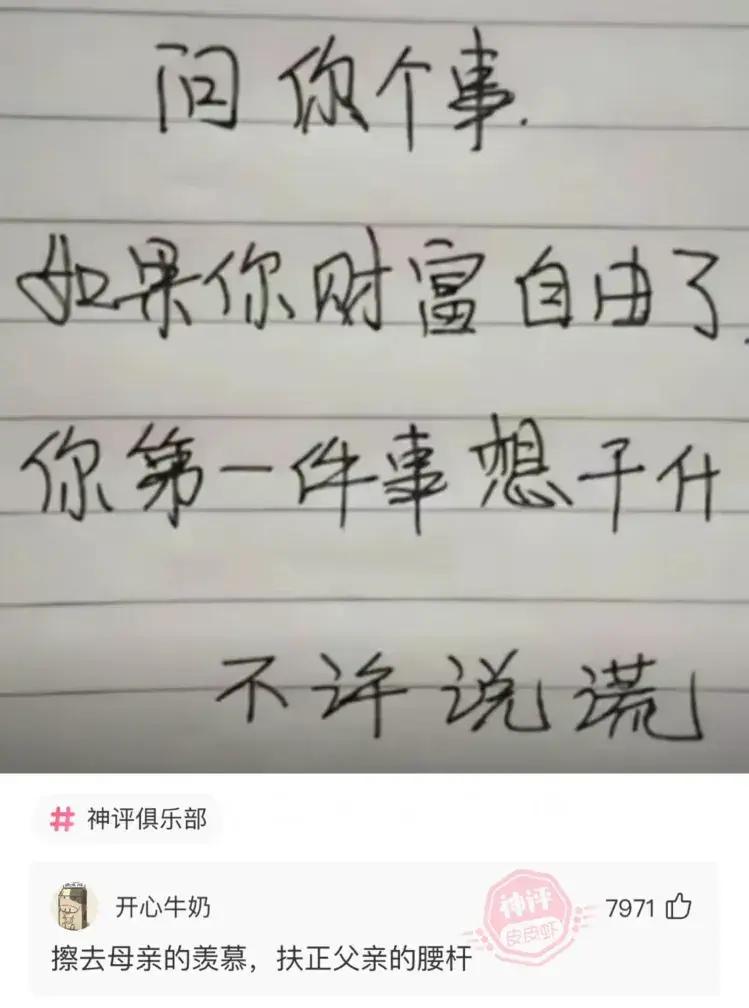 问你个事.
如果你财富自由了
你第一件事想干什
不许说谎
# 神评俱乐部
开心牛奶
神评
皮皮虾
7971
擦去母亲的羡慕，扶正父亲的腰杆